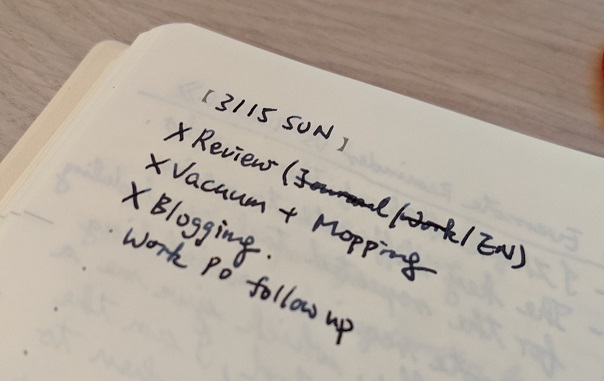 [3/15 SUN]
X Review (Journal/Work/EN)
X Vacuum + Mopping
X Blogging.
· Work PO follow up